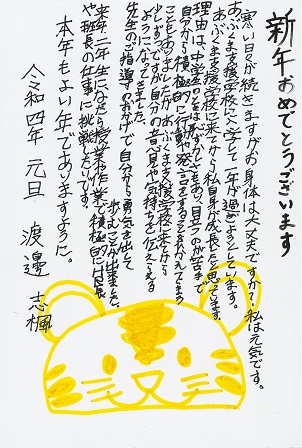 新年おめでとうございます
寒い日々が続きますがお身体は大丈夫ですか？私は元気です。
あぶくま支援学校に入学して一年が過ぎようとしています。
あぶくま支援学校に来てから私自身が成長したと思っています。
理由は、中学校のときは恥ずかしさもあり、目立つのが苦手で
自分から積極的に行動や発言をすることをひかえていました。
こともありましたがあぶくま支援学校に来てから
少しずつですが自分の意見や気持ちを伝えられる
ようになってきました。
先生のご指導のおかげで自分から勇気を出して
一歩ふみ出すことが出来ました。
来年二年生になったら授業や作業で積極的に班長
や班長の仕事に挑戦したいです。
本年もよい年でありますように。
令和四年 元旦 渡邉 志楓